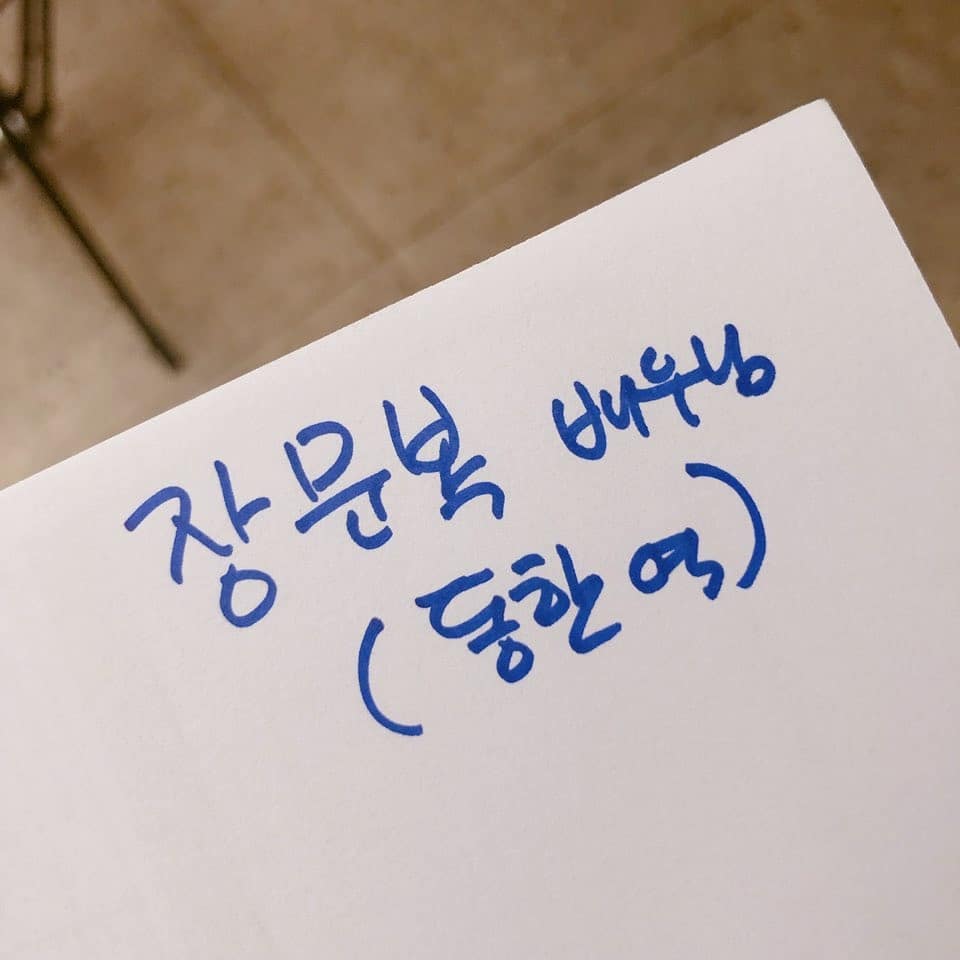 장문복 배우님
(동한 역)